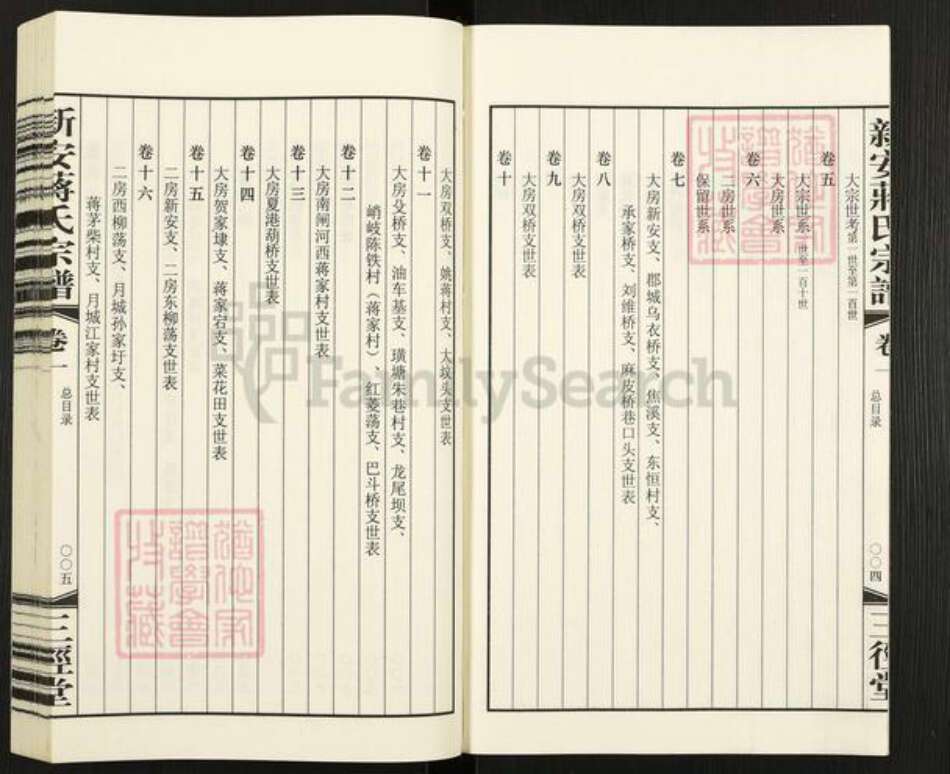 新安蔣氏宗譜
卷一
总目录
〇〇四
三徑堂
大宗世考第一世至第一百世
卷五
大宗世系
大房世系
卷六
二房世系
保留世系
卷七
大房新安支、郡城乌衣桥支、焦溪支、东恒村支、
承家桥支、刘维桥支、麻皮桥巷口头支世表
卷八
大房双桥支世表
卷九
大房双桥支世表
卷十
大房双桥支、姚蒋村支、大坟头支世表
卷十一
大房殳桥支、油车基支、璜塘朱巷村支、龙尾坝支、
峭岐陈铁村（蒋家村）、红菱荡支、巴斗桥支世表
卷十二
大房南闸河西蒋家村支世表
卷十三
大房夏港葫桥支世表
卷十四
大房贺家埭支、蒋家宕支、菜花田支世表
卷十五
二房新安支、二房东柳荡支世表
卷十六
二房西柳荡支、月城孙家圩支、
蒋茅柴村支、月城江家村支世表
新安蔣氏宗譜
卷一
总目录
〇〇五
三徑堂
FamilySearch